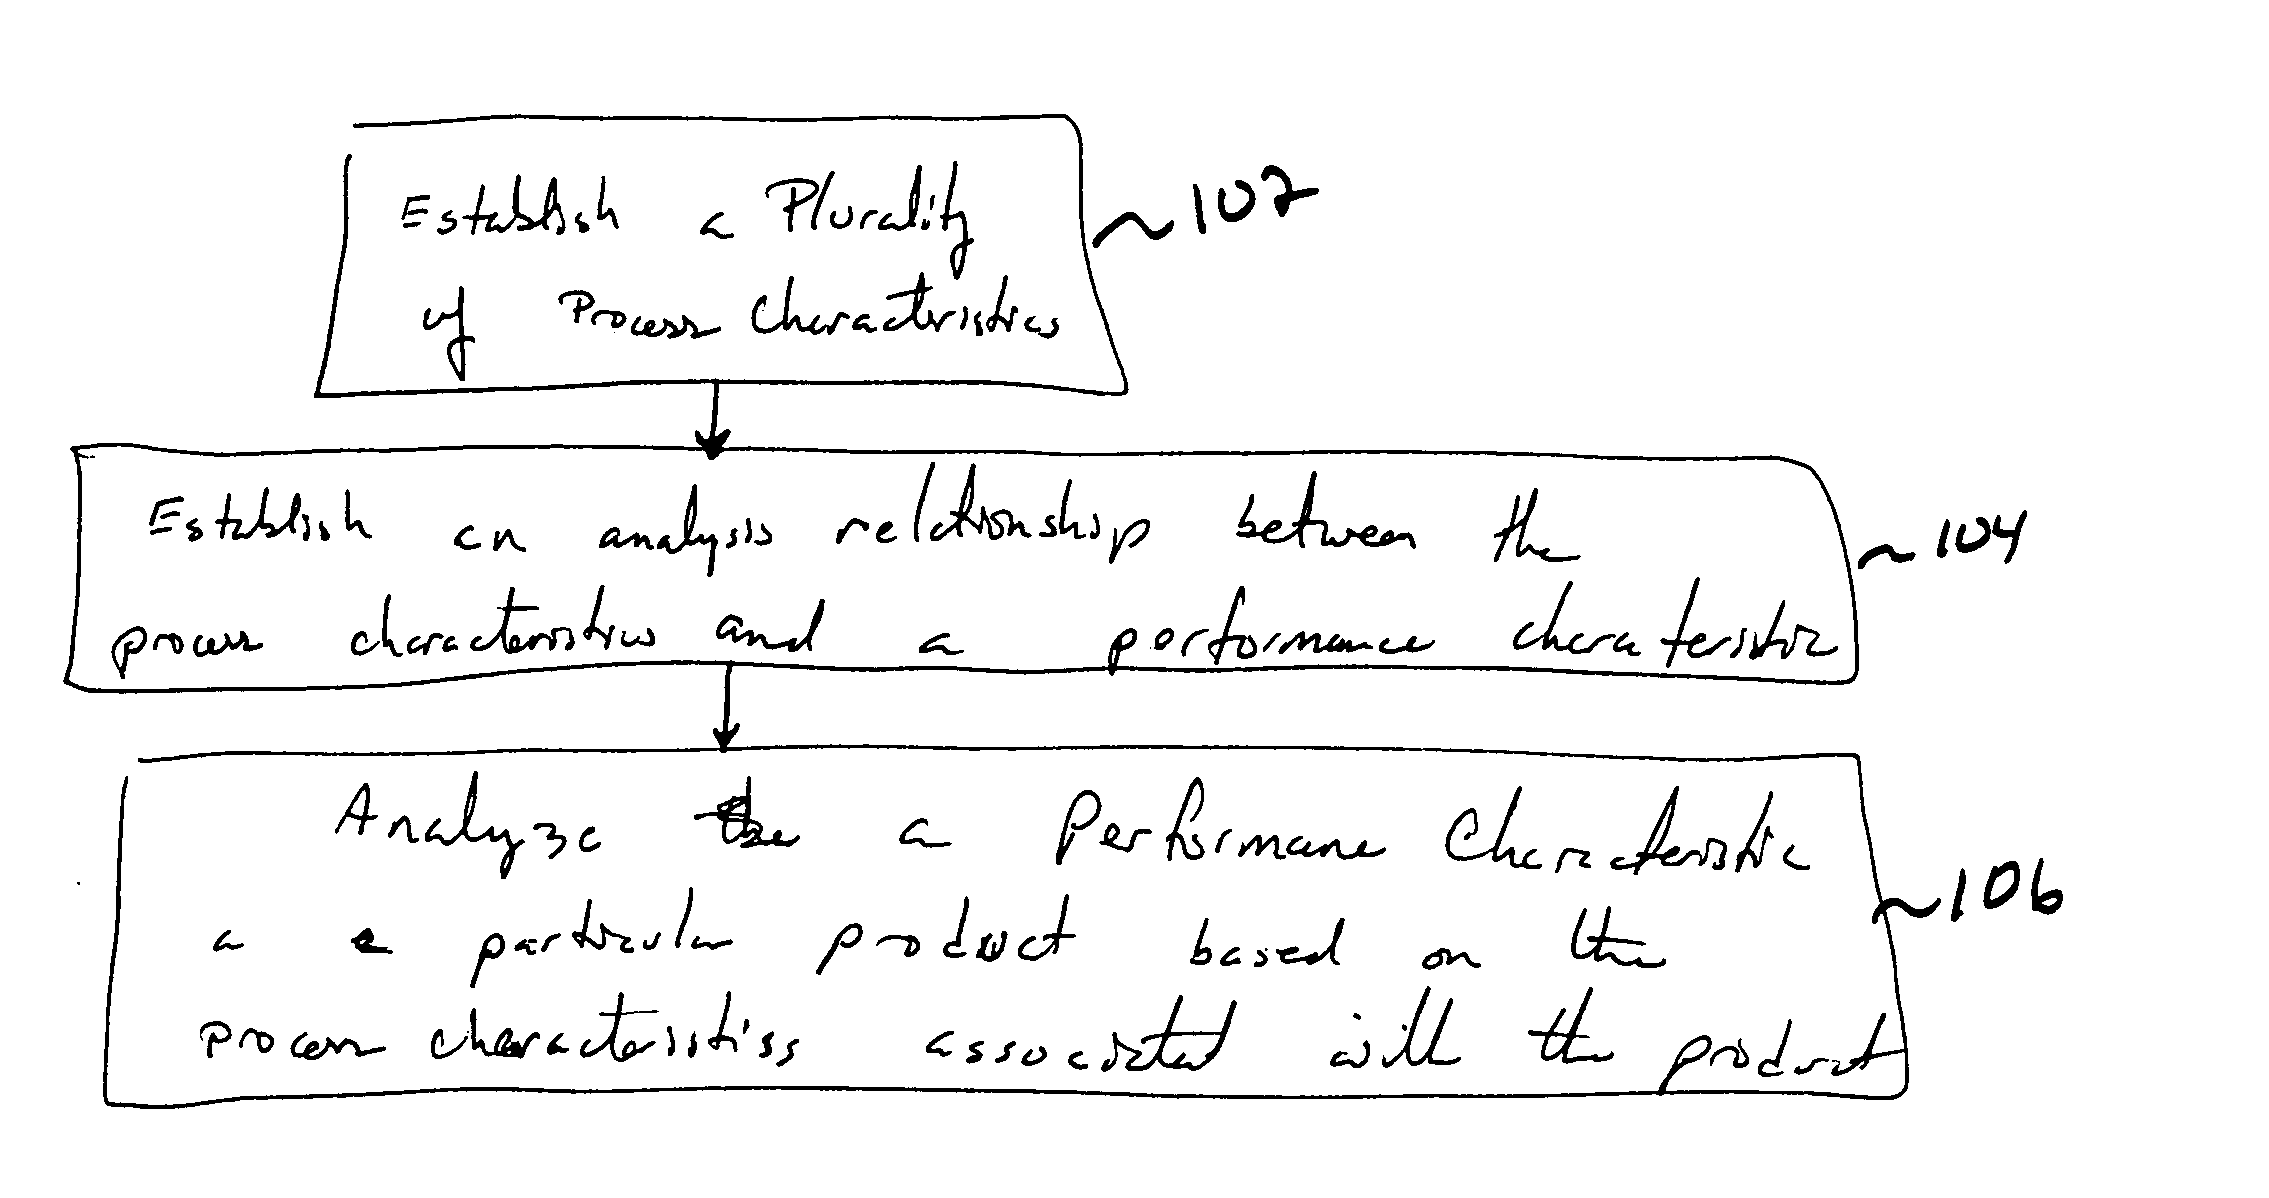 Establish a Plurality
of Process Characteristics
~102
Establish an analysis relationship between the
process characteristics and a performance charateristic
~104
Analyze a Performance Characteristic
a particular product based on the
process characteristics associated with the product
~106